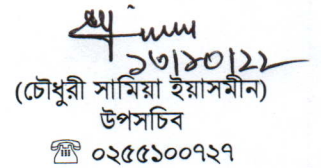 ১৩/১০/২২
(চৌধুরী সামিয়া ইয়াসমীন)
উপসচিব
☎ ০২৫৫১০০৭২৭